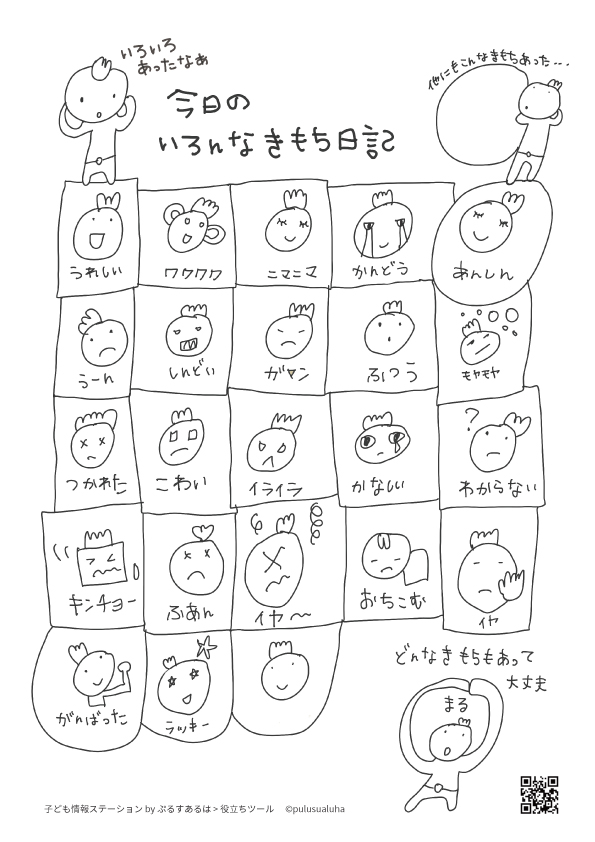 いろいろ
あったなぁ
他にもこんなきもちあった・・・
今日の
いろんなきもち日記
うれしい
ワクワク
ニマニマ
かんどう
あんしん
うーん
しんどい
ガマン
ふつう
モヤモヤ
つかれた
こわい
イライラ
かなしい
?
わからない
キンチョー
ふあん
イヤ〜
おちこむ
イヤ
がんばった
ラッキー
どんなきもちもあって
大丈夫
まる
子ども情報ステーション by ぷるすあるは > 役立ちツール ©pulusualuha